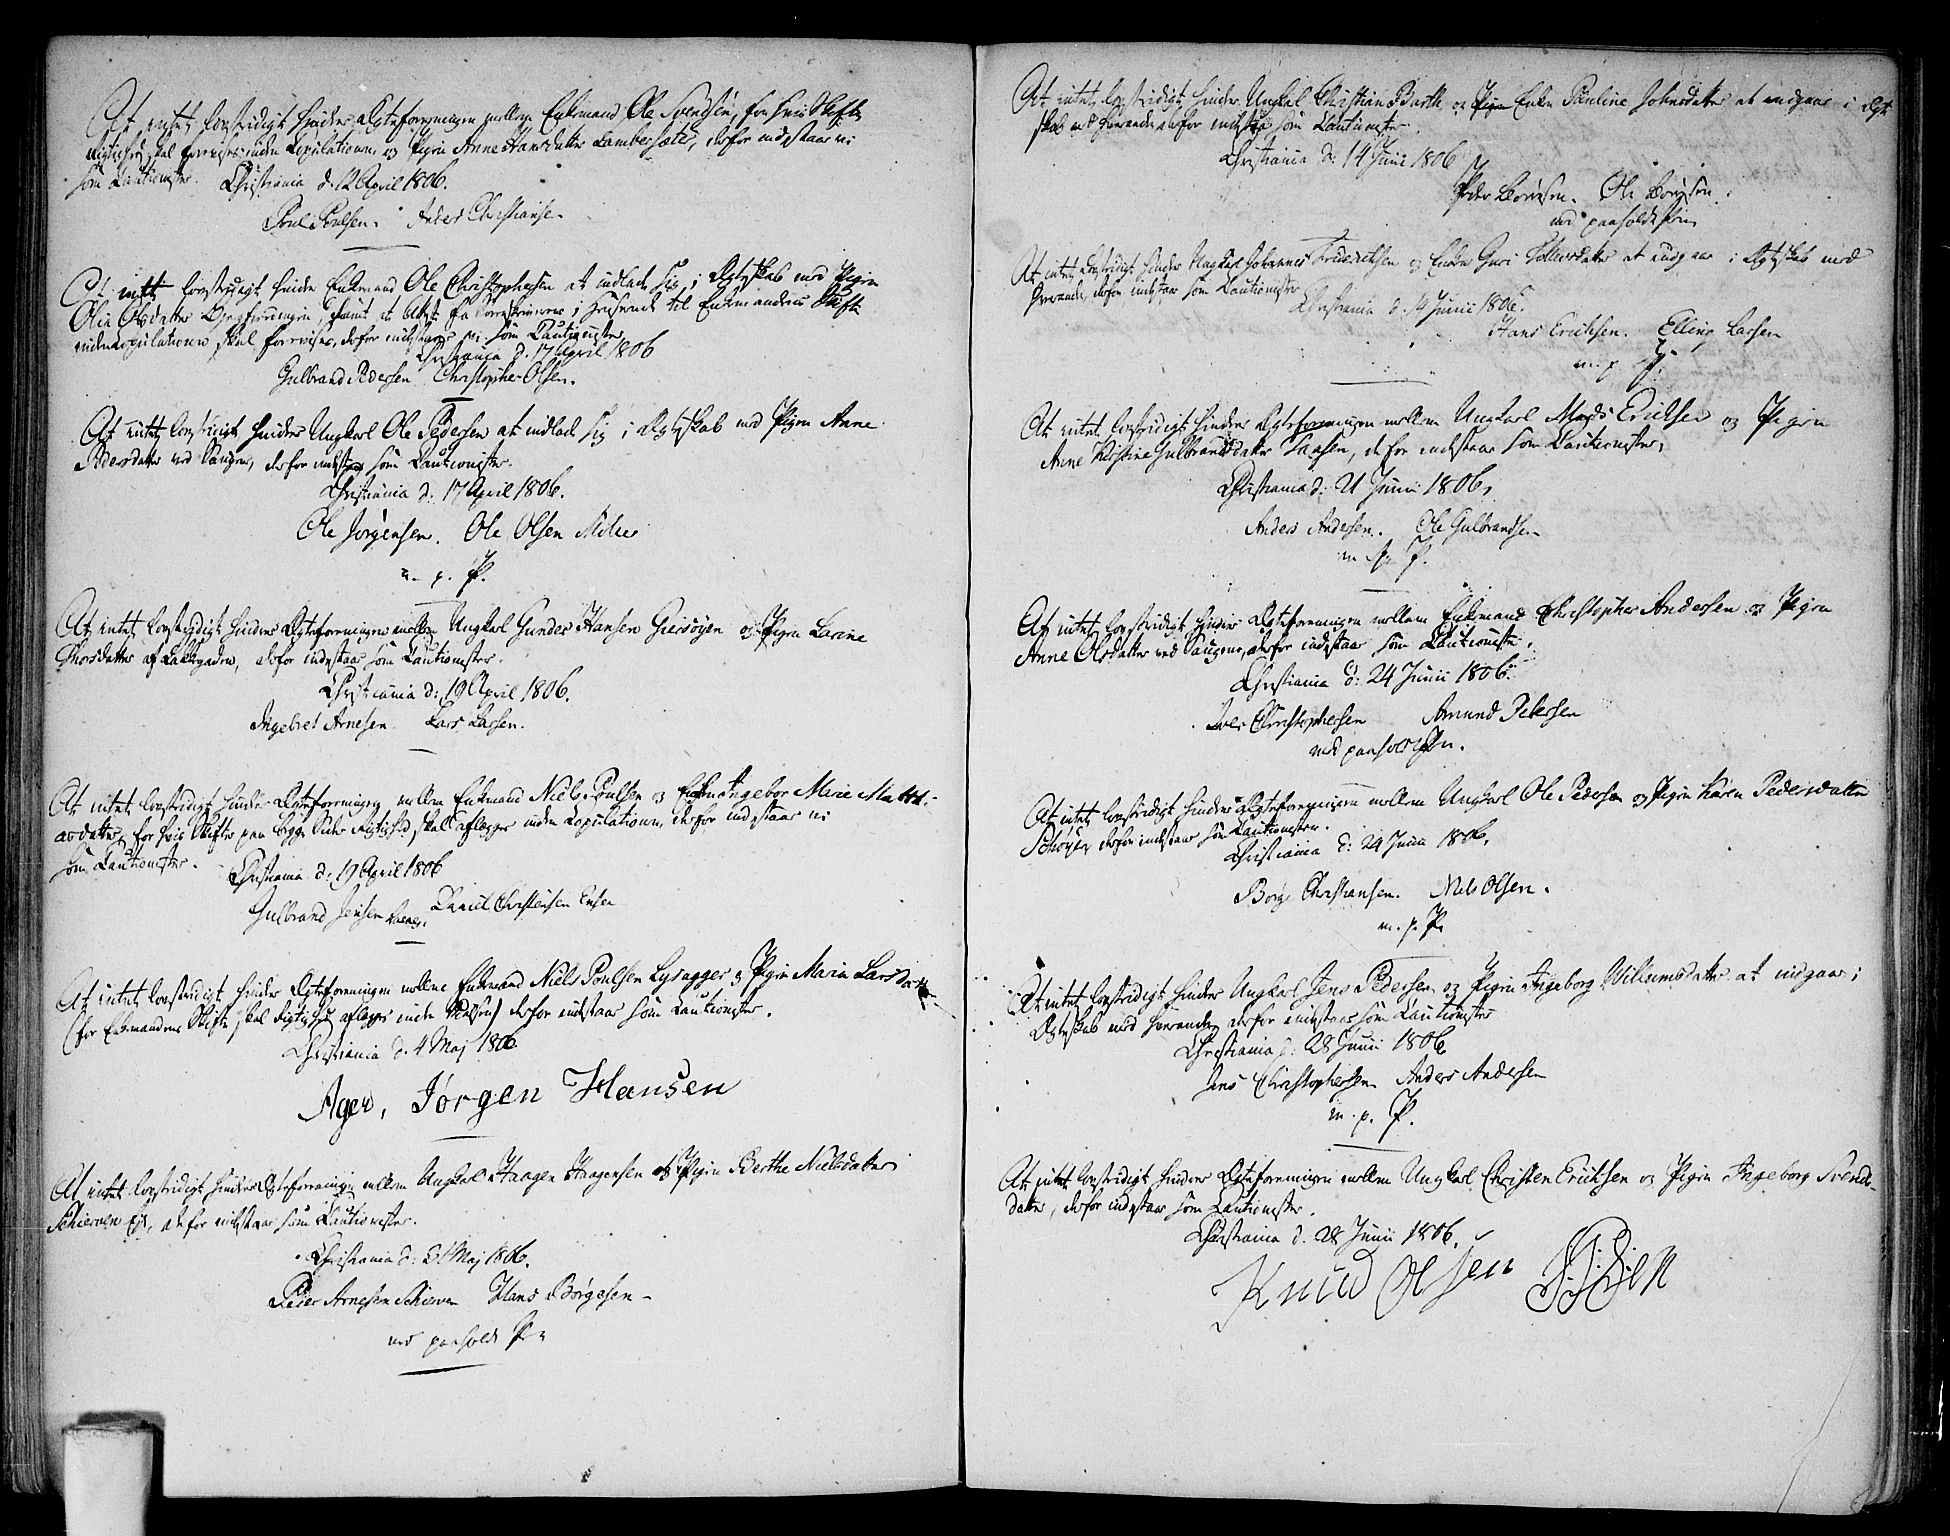 At intet lovstridigt hindrer Ægteforeningen mellem Enkemand Ole Svendsen, for hvis Skifte
Rigtighed skal forevises inden Copulationen, og Pigen Anne Hansdatter Lambersæter, derfor indestaar vi
som Cautionister. Christiania d. 12 April 1806.
Poul Poulsen. Anders Christianse.
At intet lovstridigt hindrer Enkemand Ole Christophersen at indlade sig i Ægteskab med Pigen
Olia Olsdatter samt at Attest fra i Henseende til Enkemandens Skifte
inden Copulationen skal forevises, derfor indestaar vi som Cautionister
Christiania d. 17 April 1806
Gulbrand Pedersen Christopher Olsen.
At intet lovstridigt hindrer Ungkarl Ole Pedersen at indlade sig i Ægteskab med Pigen Anne
Pedersdatter ved Saugene, derfor indestaar som Cautionister.
Christiania d: 17 April 1806.
Ole Jørgensen. Ole Olsen Moluer
m. p. P.
At intet lovstridigt hindrer Ægteforeningen mellem Ungkarl Gunder Hansen Geirsøyen og Pigen Larine
Thorsdatter af Lakkegaden, derfor indestaar som Cautionister.
Christiania d: 19 April 1806.
Ingebret Arnesen Lars Larsen.
At intet lovstridigt hindrer Ægteforening mellem Enkemand Niels Poulsen og Enken Ingebor Marie Matthi-
asdatter, for hvis Skifter paa begge Sider Rigtighed skal aflægges inden Copulationen, derfor indestaar vi
som Cautionister.
Christiania d: 19 April 1806
Gulbrand Jensen Daniel Christensen
At intet lovstridigt hindrer Ægteforeningen mellem Enkemand Niels Poulsen Lysagger og Pigen Maria Larsdatter
(for Enkemandens Skifte skal Rigtighed aflægges inden Vielsen) derfor indestaar som Cautionister.
Christiania d. 4 Maj 1806
Ager, Jørgen Hansen
At intet lovstridigt hindrer Ægteforeningen mellem Ungkarl Haagen Haagensen og Pigen Berthe Nielsdatter
Schierven Eje, derfor indestaar som Cautionister.
Christiania d: 31 Maj 1806.
Peder Arnesen Schierven Hans Børgesen
med paaholden Pen
At intet lovstridigt hindrer Ungkarl Christian Barth og Enken Pauline Johnsdatter at indgaae i Ægte
skab med hverandre derfor indestaa som Cautionister.
Christiania d: 14 Junii 1806
Peder Børresen. Ole Børgsen.
med paaholden Pen
At intet lovstridigt hinder Ungkarl Johannes Friderichsen og Enken Guri Tollevsdatter at indgaae i Ægteskab med
hverandre, derfor indestaar som Cautionister
Christiania d. 14 Junii 1806.
Hans Erichsen. Elling Larsen
m. p. P.
At intet lovstridigt hindrer Ægteforeningen mellem Ungkarl Mads Erichsen og Pigen
Anne Kirstine Gulbrandsdatter Saasen, derfor indestaar som Cautionister,
Christiania d: 21 Junii 1806,
Anders Andersen. Ole Gulbrandsen
m p. P.
At intet lovstridigt hindrer Ægteforeningen mellem Enkemand Christopher Andersen og Pigen
Anne Olsdatter ved Saugene, derfor indestaar som Cautionister.
Christiania d: 24 Junii 1806.
Iver Christophersen Amund Petersen
med paaholden Pen.
At intet lovstridigt hindrer Ægteforeningen mellem Ungkarl Ole Pedersen og Pigen Karen Pedersdatter
Schøyen derfor indestaar som Cautionister.
Christiania d: 24 Junii 1806,
Børge Christiansen. Niels Olsen.
m. p. P.
At intet lovstridigt hindrer Ungkarl Jens Pedersen og Pigen Ingeborg Willumsdatter at indgaae i
Ægteskab med hverandre, derfor indestaar som Cautionister
Christiania d: 28 Junii 1806,
Jens Christophersen Anders Andersen
m. p. P.
At intet lovstridigt hindrer Ægteforeningen mellem Ungkarl Christen Erichsen og Pigen Ingeborg Svends-
datter, derfor indestaar som Cautionister.
Christiania d. 28 Junii 1806.
Knud Olsen